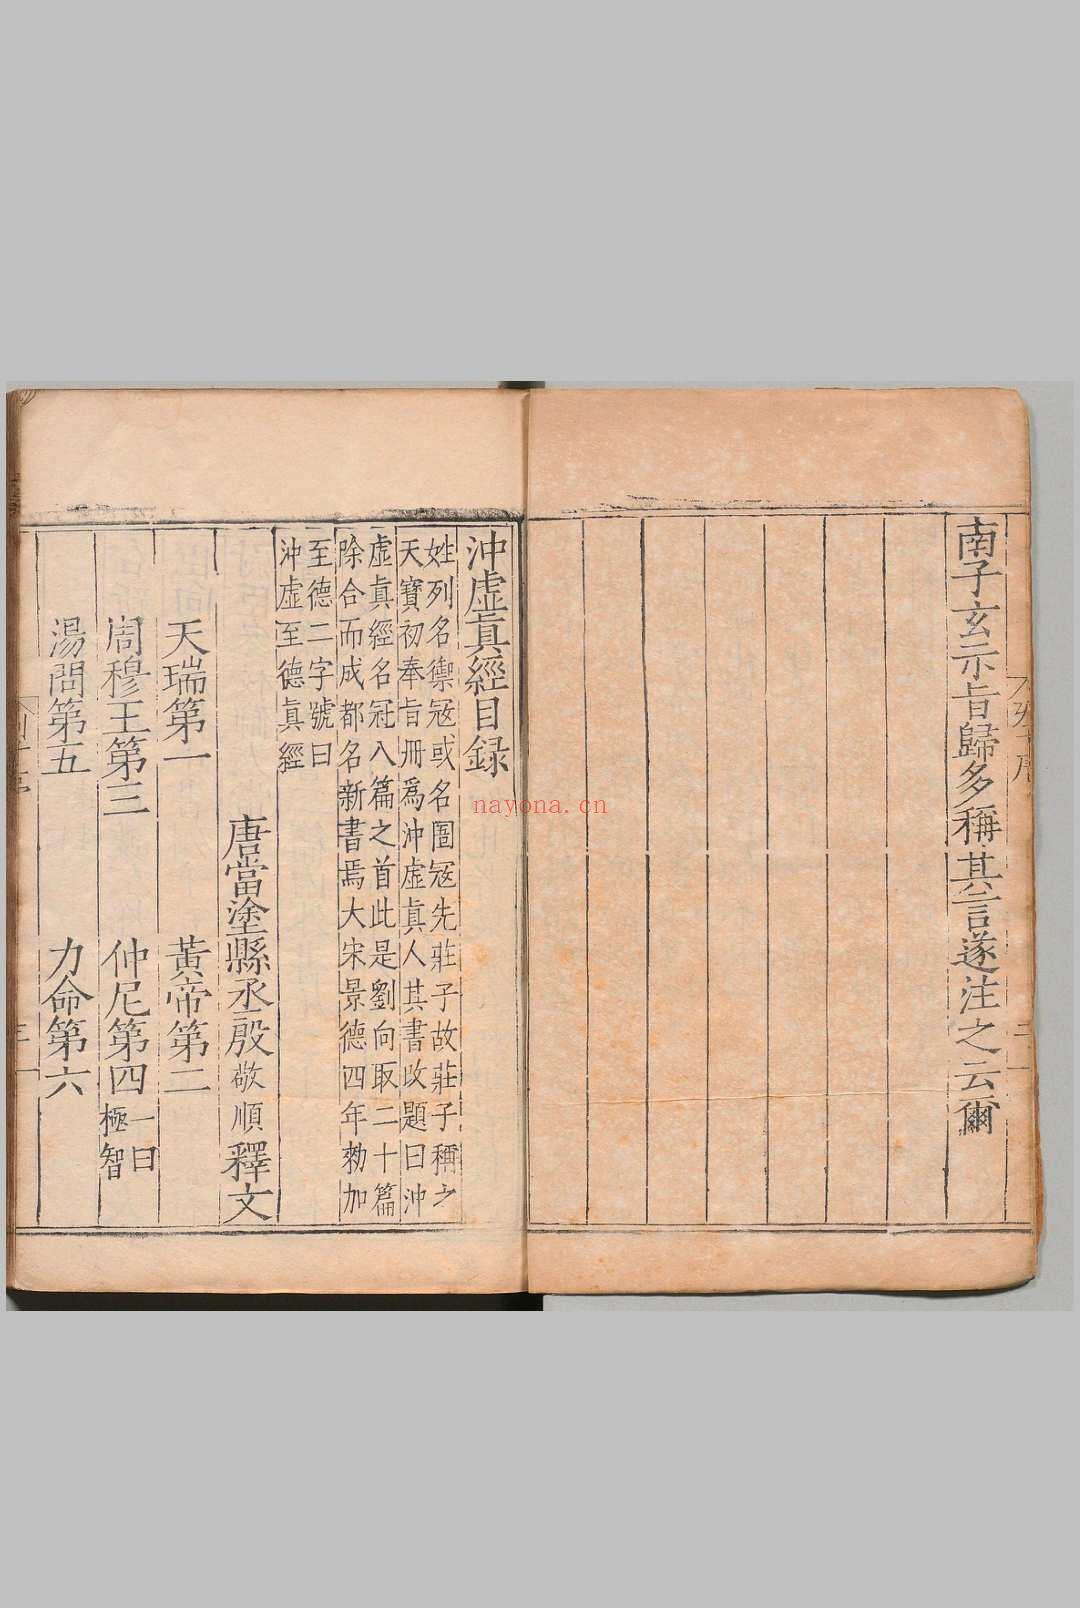 南子玄示旨歸多稱其言遂注之云爾
沖虛眞經目錄
姓列名禦寇或名圄寇先莊子故莊子稱之
天寶初奉旨冊爲沖虛真人其書改題曰沖
虛真經名冠八篇之首此是劉向取二十篇
除合而成都名新書焉大宋景德四年勑加
至德二字號曰
沖虛至德真經
唐當塗縣丞殷敬順釋文
天瑞第一 黃帝第二
周穆王第三 仲尼第四 一曰極智
湯問第五 力命第六
nayona.cn